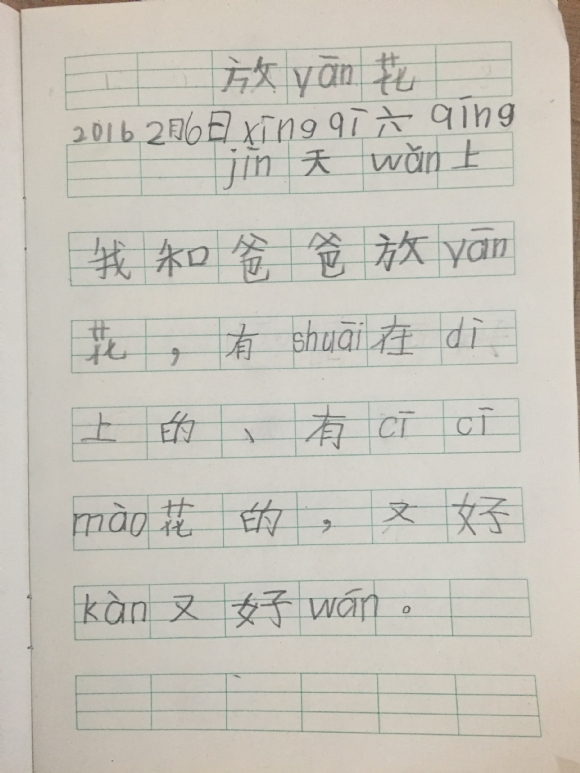 放yān花
2016 2月6日 xīng qī 六 qīng
jīn 天 wǎn 上
我和爸爸放yān
花，有shuāi在dì
上的、有cī cī
mào花的，又好
kàn又好wán。